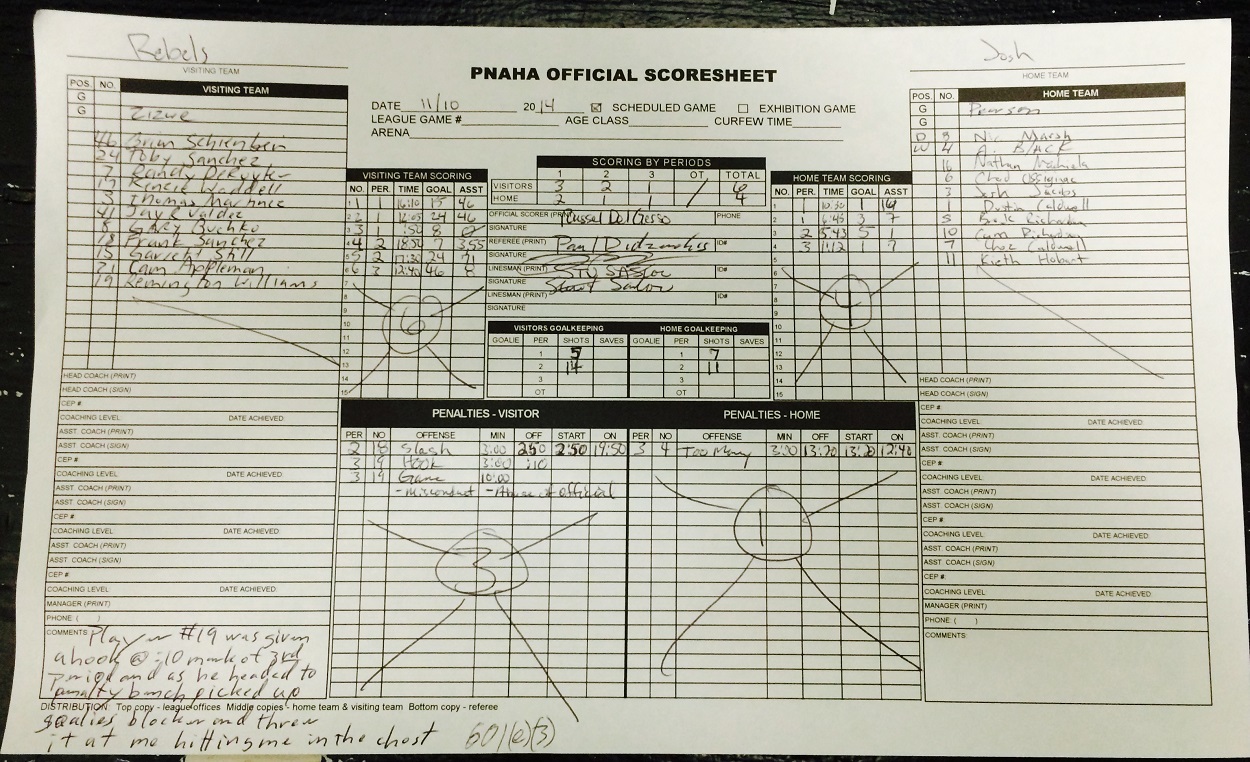 Rebels
Josh
VISITING TEAM
HOME TEAM
PNAHA OFFICIAL SCORESHEET
DATE 11/10 2014 ☒ SCHEDULED GAME ☐ EXHIBITION GAME
LEAGUE GAME # AGE CLASS CURFEW TIME
ARENA
POS. NO. VISITING TEAM
G
G
46 Brian Schienbein
24 Toby Sanchez
7 Randy
17 Waddell
3 Thomas Martinez
41 Jay R Valdez
8 Gary Buchko
18 Frank Sanchez
15 Garrett Still
71 Cam Appleman
19 Remington Williams
HEAD COACH (PRINT)
HEAD COACH (SIGN)
CEP #
COACHING LEVEL DATE ACHIEVED
ASST. COACH (PRINT)
ASST. COACH (SIGN)
CEP #
COACHING LEVEL DATE ACHIEVED
ASST. COACH (PRINT)
ASST. COACH (SIGN)
CEP #
COACHING LEVEL DATE ACHIEVED
ASST. COACH (PRINT)
ASST. COACH (SIGN)
CEP #
COACHING LEVEL DATE ACHIEVED
MANAGER (PRINT)
PHONE ( )
VISITING TEAM SCORING
NO. PER. TIME GOAL ASST
1 1 16:10 15 46
2 1 12:05 24 46
3 1 :50 8
4 2 18:50 7 3,55
5 2 17:30 24 71
6 3 12:40 46 8
7
8
9
10
11
12
13
14
15
6
SCORING BY PERIODS
1 2 3 OT TOTAL
VISITORS 3 2 1 / 6
HOME 2 1 1 4
OFFICIAL SCORER (PRINT) Russel DalGesso PHONE
SIGNATURE
REFEREE (PRINT) Paul ID#
SIGNATURE
LINESMAN (PRINT) STU ID#
SIGNATURE
LINESMAN (PRINT) ID#
SIGNATURE
VISITORS GOALKEEPING HOME GOALKEEPING
GOALIE PER SHOTS SAVES GOALIE PER SHOTS SAVES
1 5 1 7
2 14 2 11
3 3
OT OT
HOME TEAM SCORING
NO. PER. TIME GOAL ASST
1 1 10:30 1 16
2 1 6:45 3 7
3 2 5:43 5 1
4 3 1:12 7
5
6
7
8
9
10
11
12
13
14
15
4
POS. NO. HOME TEAM
G Pearson
G
D 8 Nic Marsh
W 4 A.J. BLACK
16 Nathan
6 Chad
3 Josh Jacobs
1 Dustin Caldwell
5 Brook Richardson
10 Cam Richardson
7 Chaz Caldwell
11 Kieth Hobart
HEAD COACH (PRINT)
HEAD COACH (SIGN)
CEP #
COACHING LEVEL DATE ACHIEVED
ASST. COACH (PRINT)
ASST. COACH (SIGN)
CEP #
COACHING LEVEL DATE ACHIEVED
ASST. COACH (PRINT)
ASST. COACH (SIGN)
CEP #
COACHING LEVEL DATE ACHIEVED
ASST. COACH (PRINT)
ASST. COACH (SIGN)
CEP #
COACHING LEVEL DATE ACHIEVED
MANAGER (PRINT)
PHONE ( )
COMMENTS:
PENALTIES - VISITOR
PER NO OFFENSE MIN OFF START ON
2 18 Slash 3:00 2:50 2:50 19:50
3 19 Hook 3:00 :10
3 19 Game 10:00
- Misconduct - Abuse of official
3
PENALTIES - HOME
PER NO OFFENSE MIN OFF START ON
3 4 Too Many 3:00 13:20 13:20 12:40
1
COMMENTS: Player #19 was given
a hook @ :10 mark of 3rd
period and as he headed to
penalty bench picked up
DISTRIBUTION: Top copy - league offices Middle copies - home team & visiting team Bottom copy - referee
goalies blocker and threw
it at me hitting me in the chest 601(e)(3)